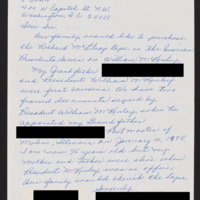 400 N Capitol St. N.W.
Washington, D.C. 20001
Dear Sir,
Our family would like to purchase
the Richard McElroy tape in the
Presidents Series on William McKinley.
My Grandfather
and President William McKinley
were first cousins. We have two
framed documents signed by
President William McKinley when he
appointed my Grandfather
Post master of
Illinois on January 10, 1898.
I am now 76 years old but my
mother and Father were alive when
President McKinley was in office.
Our family would cherish the tape.
Sincerely